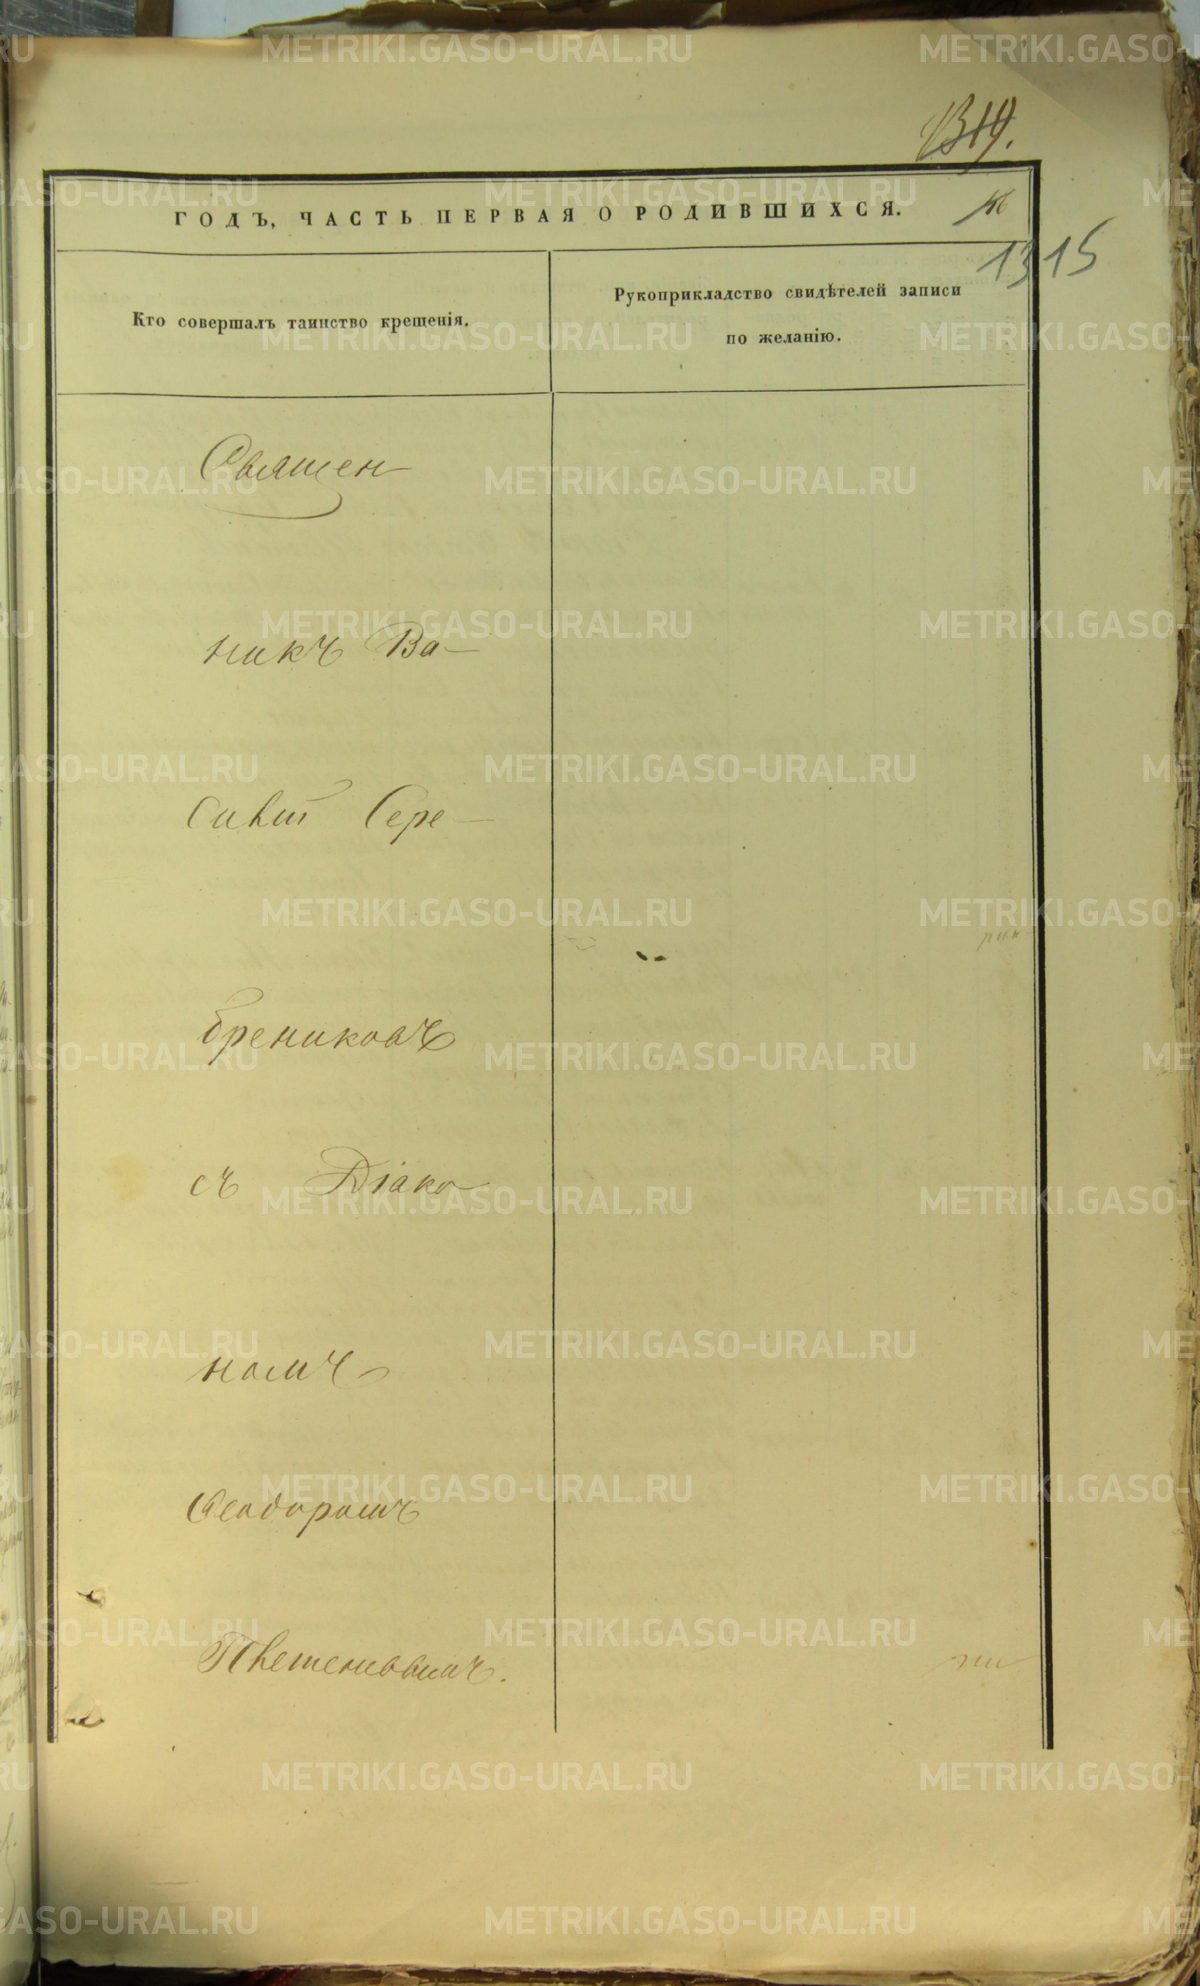 1319.
ГОДЪ, ЧАСТЬ ПЕРВАЯ О РОДИВШИХСЯ.
1315
Кто совершалъ таинство крещенія.
Рукоприкладство свидѣтелей записи
по желанію.
Священ
никъ Ва-
силій Сере-
брениковъ
съ Діако
номъ
Ѳеодоромъ
METRIKI.GASO-URAL.RU